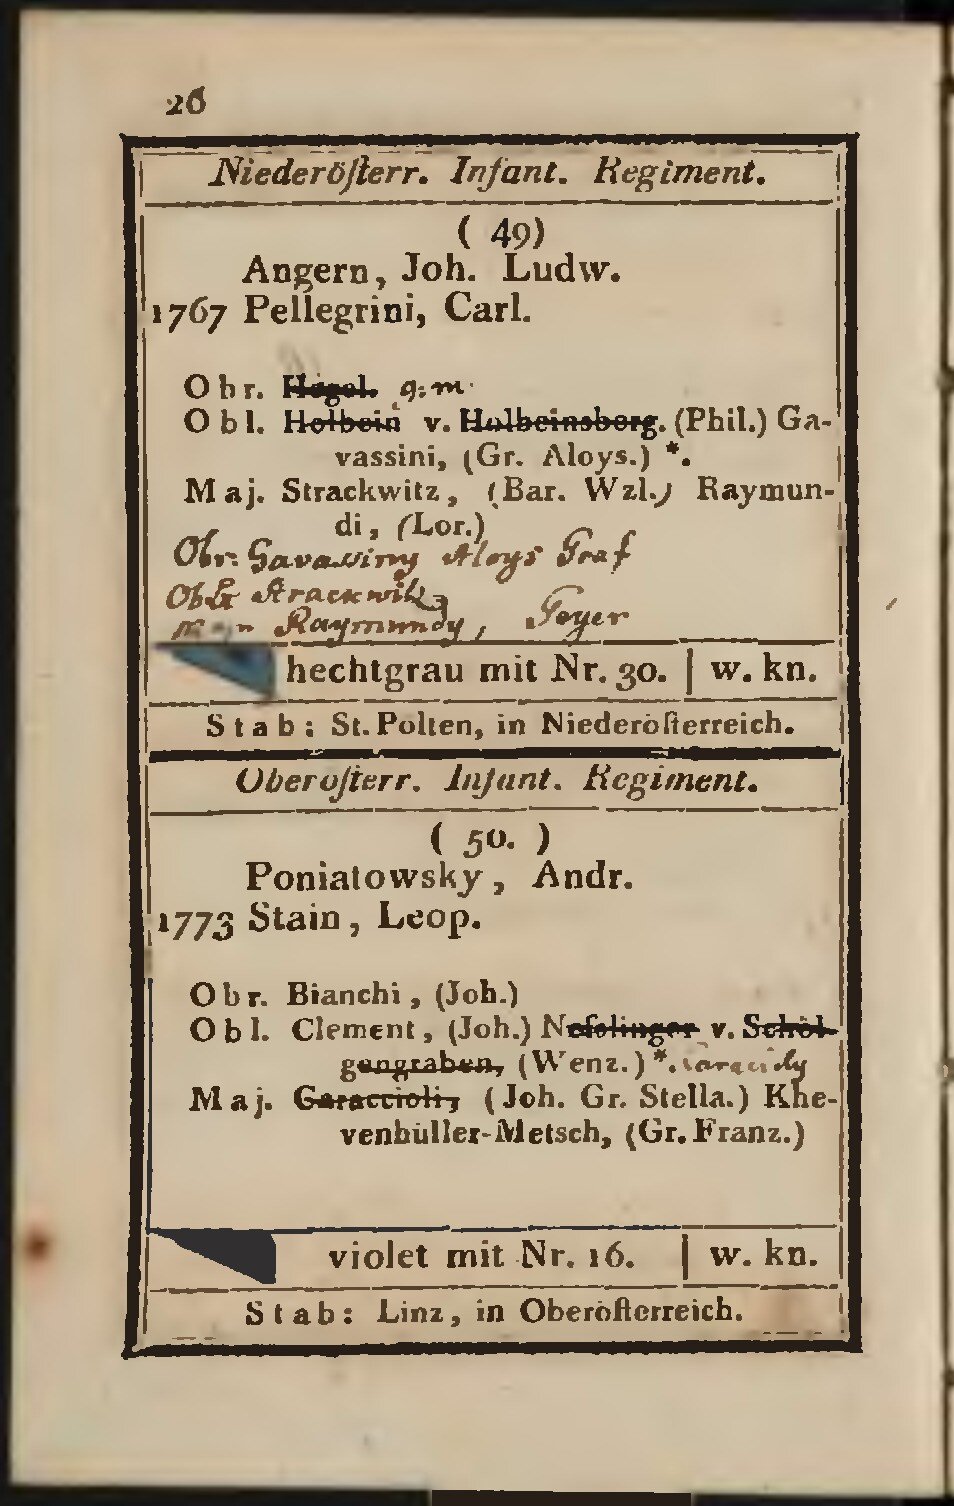 26
Niederöſterr. Infant. Regiment.
( 49)
Angern, Joh. Ludw.
1767 Pellegrini, Carl.
Obr. Hagel. g: m.
Obl. Holbein v. Holbeinsberg. (Phil.) Ga-
vassini, (Gr. Aloys.) *.
Maj. Strackwitz, (Bar. Wzl.) Raymun-
di, (Lor.)
Obr: Gavassiny Aloys Graf
Obl Strackwitz
Raymundy, Geyer
hechtgrau mit Nr. 30. | w. kn.
Stab: St. Pölten, in Niederöſterreich.
Oberöſterr. Infant. Regiment.
( 50. )
Poniatowsky, Andr.
1773 Stain, Leop.
Obr. Bianchi, (Joh.)
Obl. Clement, (Joh.) Neſslinger v. Schöl-
gengraben, (Wenz.) *.
Maj. Caraccioli, (Joh. Gr. Stella.) Khe-
venhüller-Metsch, (Gr. Franz.)
violet mit Nr. 16. | w. kn.
Stab: Linz, in Oberöſterreich.